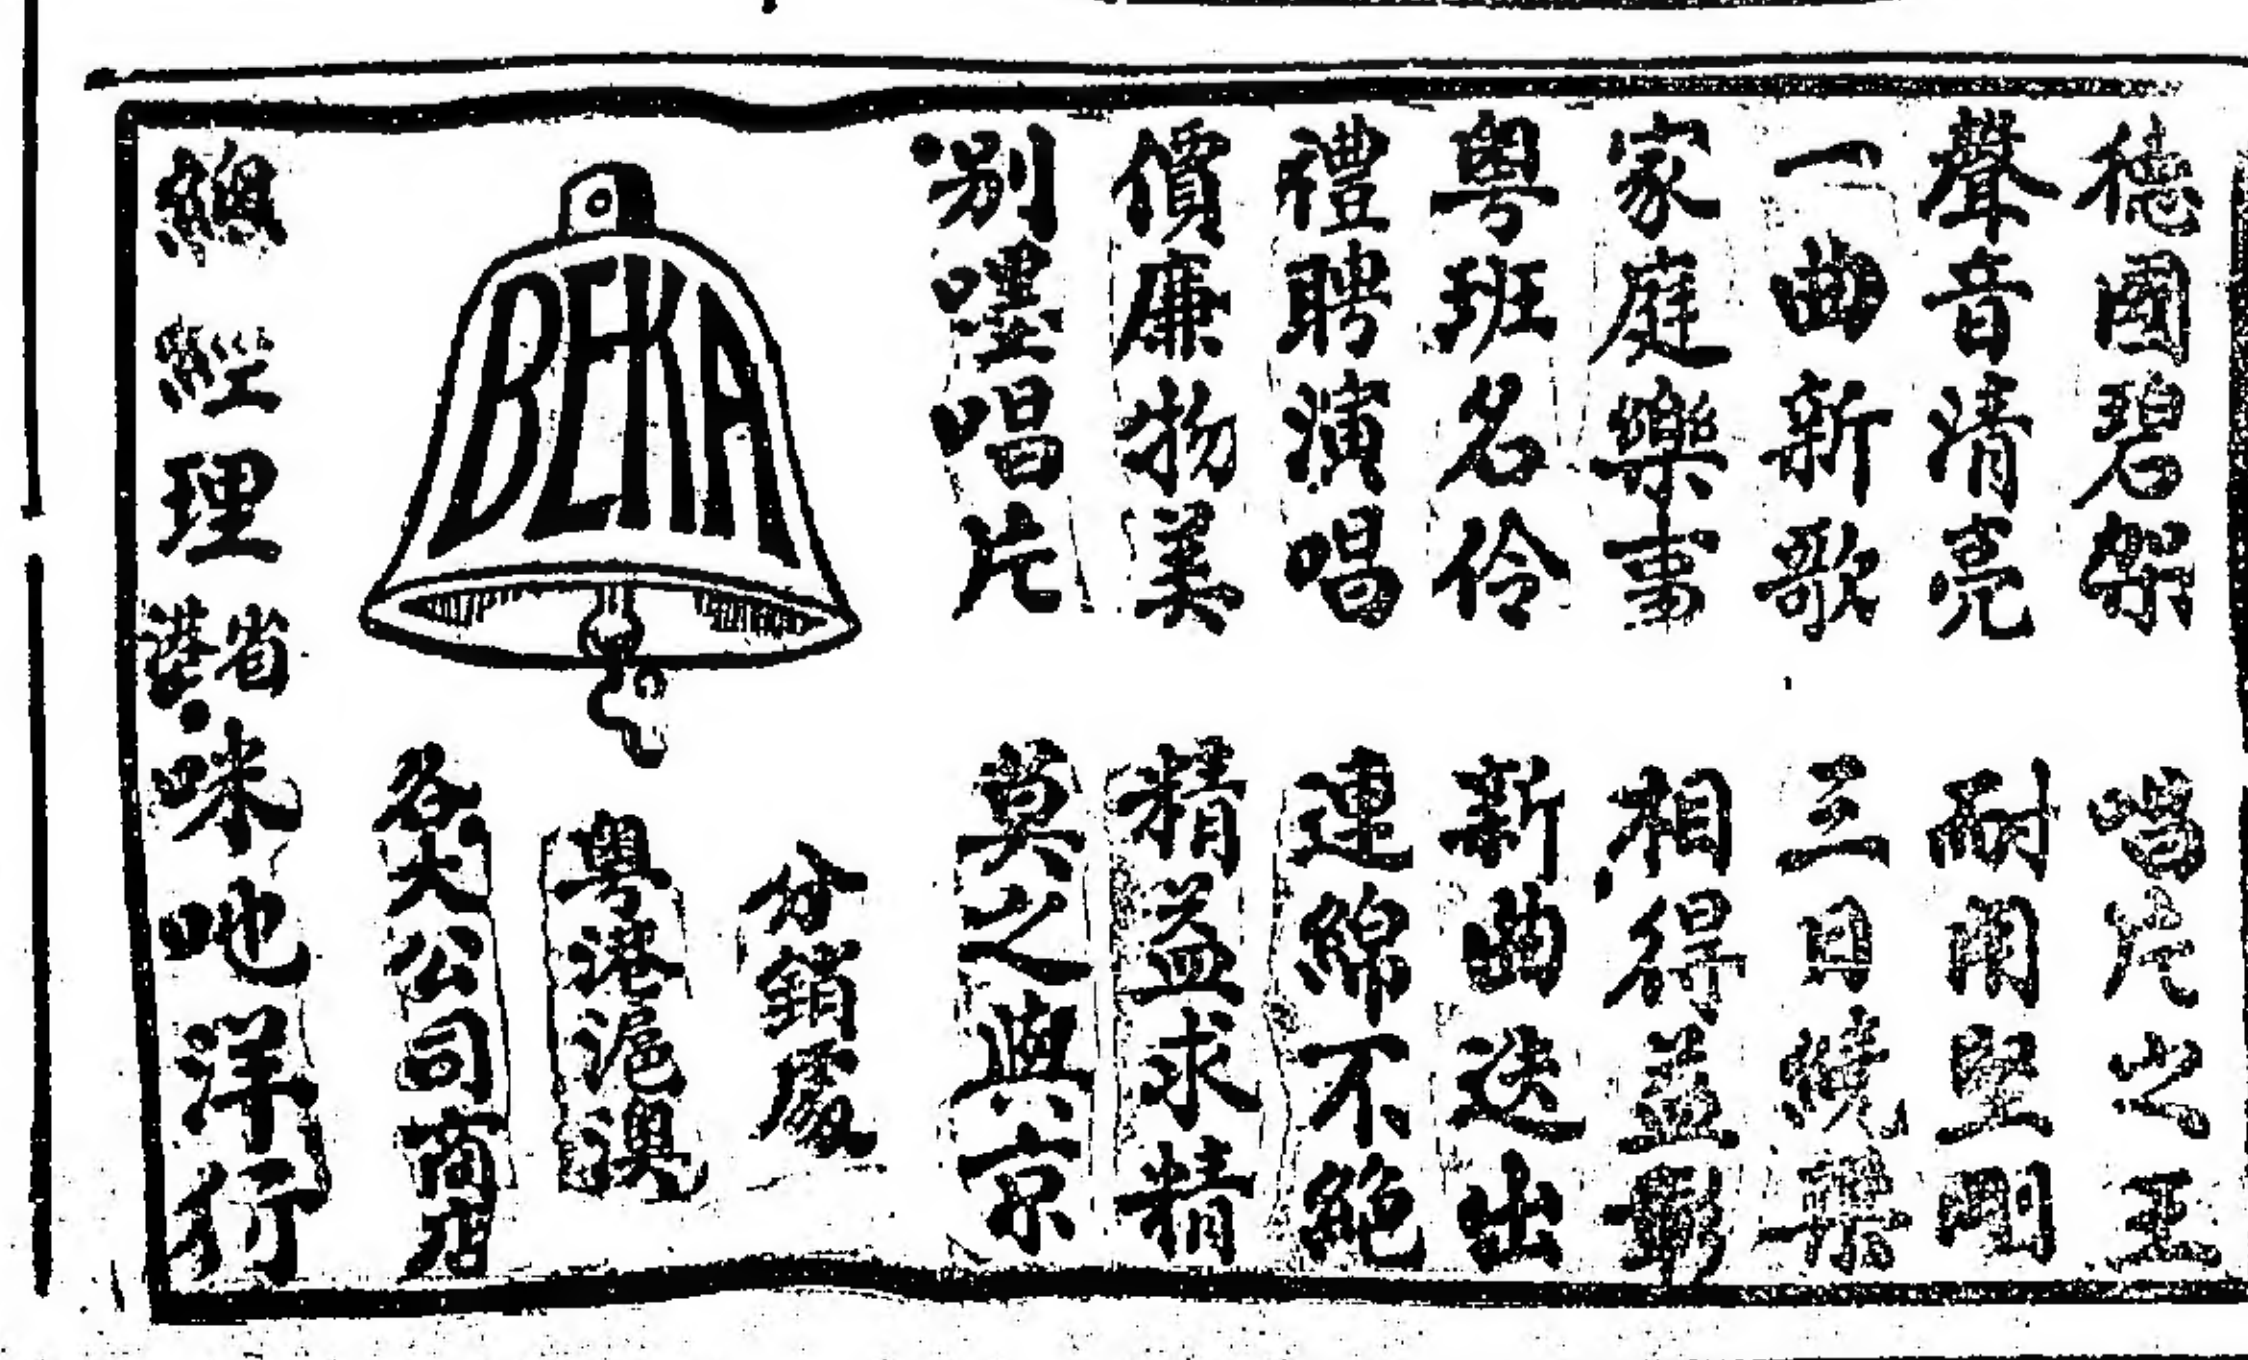 德國碧架 唱片之王
聲音清亮 耐用堅剛
一曲新歌 三日繞樑
家庭樂事 相得益彰
粵班名伶 新曲迭出
禮聘演唱 連綿不絕
價廉物美 精益求精
別唱片 莫之與京
BEKA
分銷處
粵港滬澳
各大公司商店
總經理省港咪吔洋行